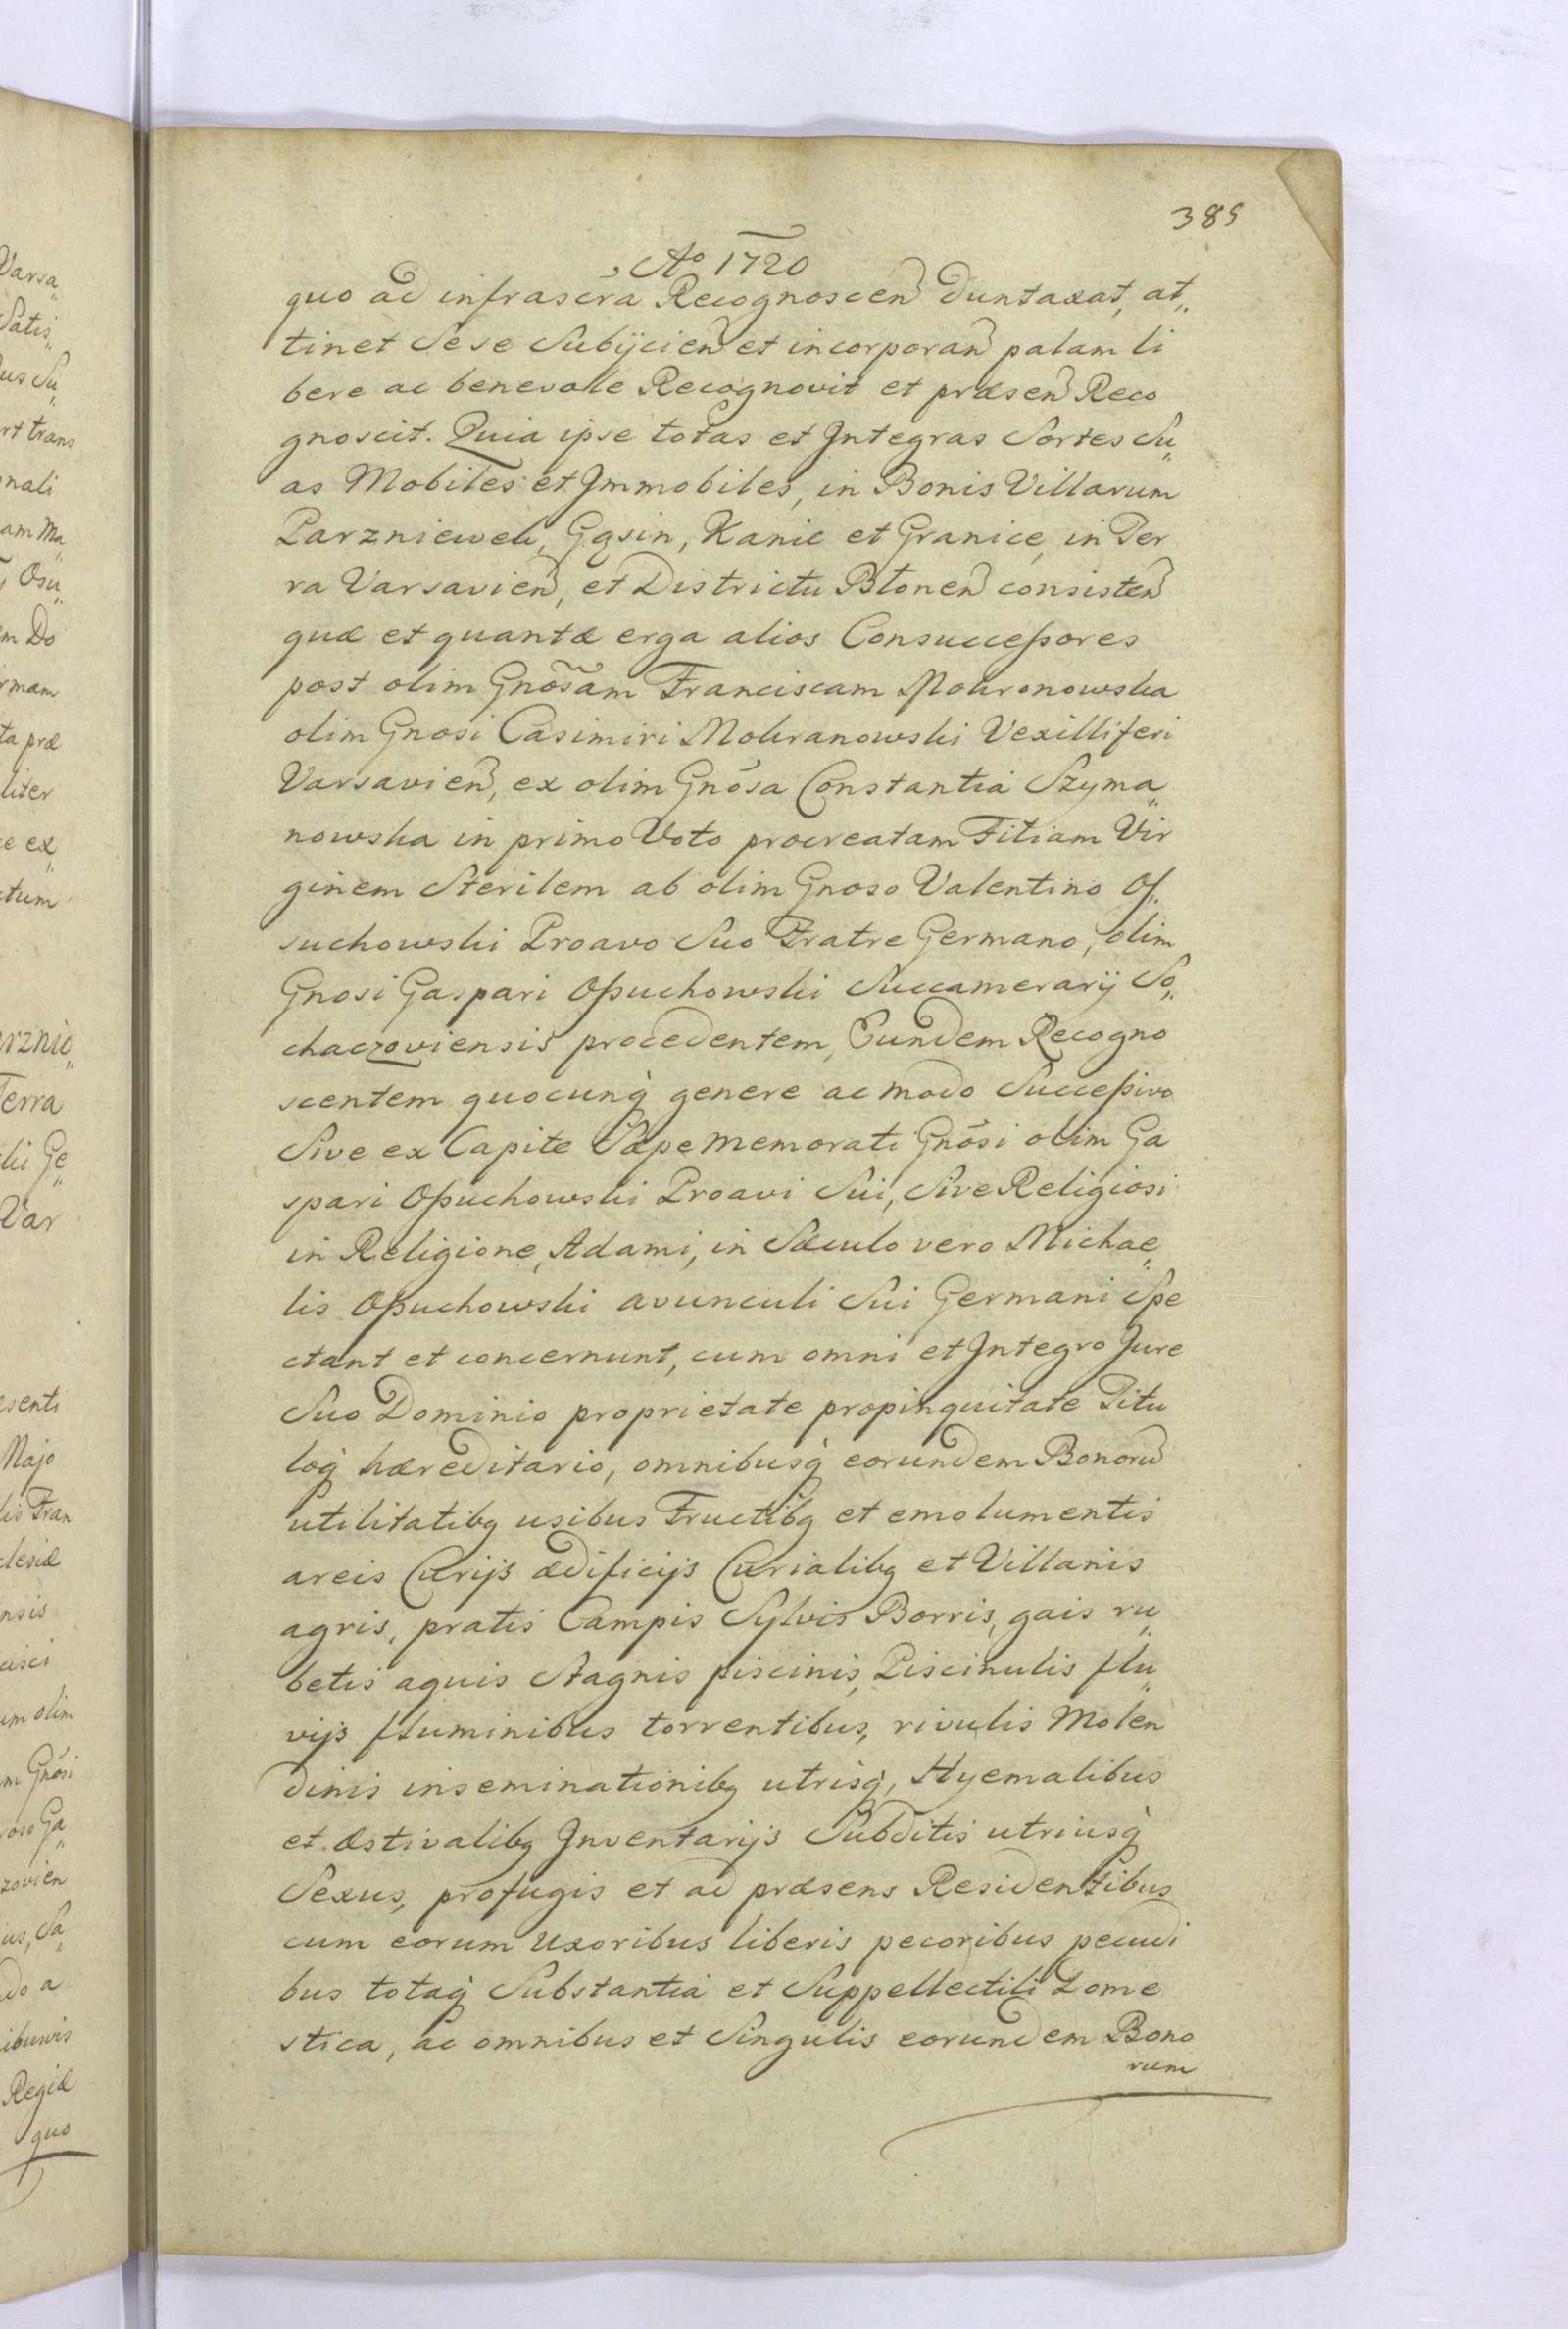 389
Aº 1720
quo ad infrascra Recognoscen duntaxat, at„
tinet Sese Subijcien et incorporan palam li
bere ac benevole Recognovit et præsen Reco
gnoscit. Quia ipse totas et Integras Sortes Su„
as Mobiles et Immobiles, in Bonis Villarum
Parzniewek, Gąsin, Kanie et Granice, in Ter
ra Varsavien, et Districtu Błonen consisten
quæ et quantæ erga alios Consuccessores
post olim Gnõsam Franciscam Mokronowska
olim Gnosi Casimiri Mokranowski Vexilliferi
Varsavien, ex olim Gnõsa Constantia Szyma„
nowska in primo Voto procreatam Filiam Vir
ginem Sterilem ab olim Gnoso Valentino Os„
suchowski Proavo Suo Fratre Germano, olim
Gnosi Gaspari Ossuchowski Succamerarij So„
chaczoviensis procedentem, Eundem Recogno
scentem quocunq̀ genere ac modo Successivo
Sive ex Capite Sæpe memorati Gnõsi olim Ga
spari Ossuchowski Proavi Sui, Sive Religiosi
in Religione, Adami, in Sæculo vero Michae„
lis Ossuchowski avunculi Sui Germani Spe
ctant et concernunt, cum omni et Integro Jure
Suo Dominio proprietate propinquitate Titu
loq̀ hæreditario, omnibusq̀ eorundem Bonorũ
utilitatibq usibus Fructibq et emolumentis
areis Curijs ædificijs Curialibq et Villanis
agris, pratis Campis Sylvis Borris, gais ru„
betis aquis Stagnis piscinis, Piscinulis flu„
vijs fluminibus torrentibus, rivulis Molen
dinis inseminationibq utrisq̀, Hyemalibus
et æstivalibq Inventarijs Subditis utriusq̀
Sexus, profugis et ad præsens Residentibus
cum eorum uxoribus liberis pecoribus pecudi
bus totaq̀ Substantia et Suppellectili Dome
stica, ac omnibus et Singulis eorundem Bono
rum